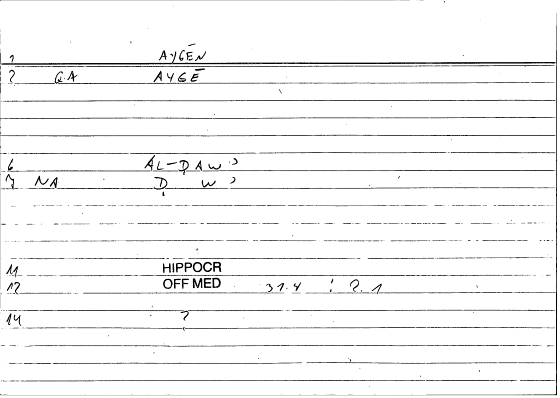 1 AYGĒN
2 GA AYGĒ
6 AL-ḌAW ʾ
7 NA Ḍ W ʾ
11 HIPPOCR
12 OFF MED 31.4 : 2.1
14 ?